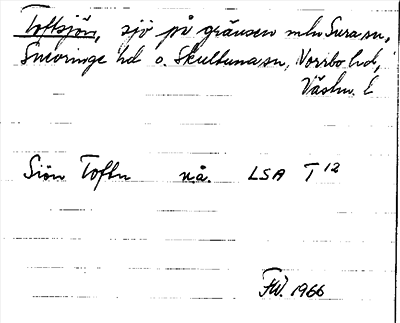 Toftsjön, sjö på gränsen mln Sura sn,
Snevringe hd o. Skultuna sn, Norrbo hd,
Västm. l.
Siön Toftn n.å. LSA T 12
FW. 1966